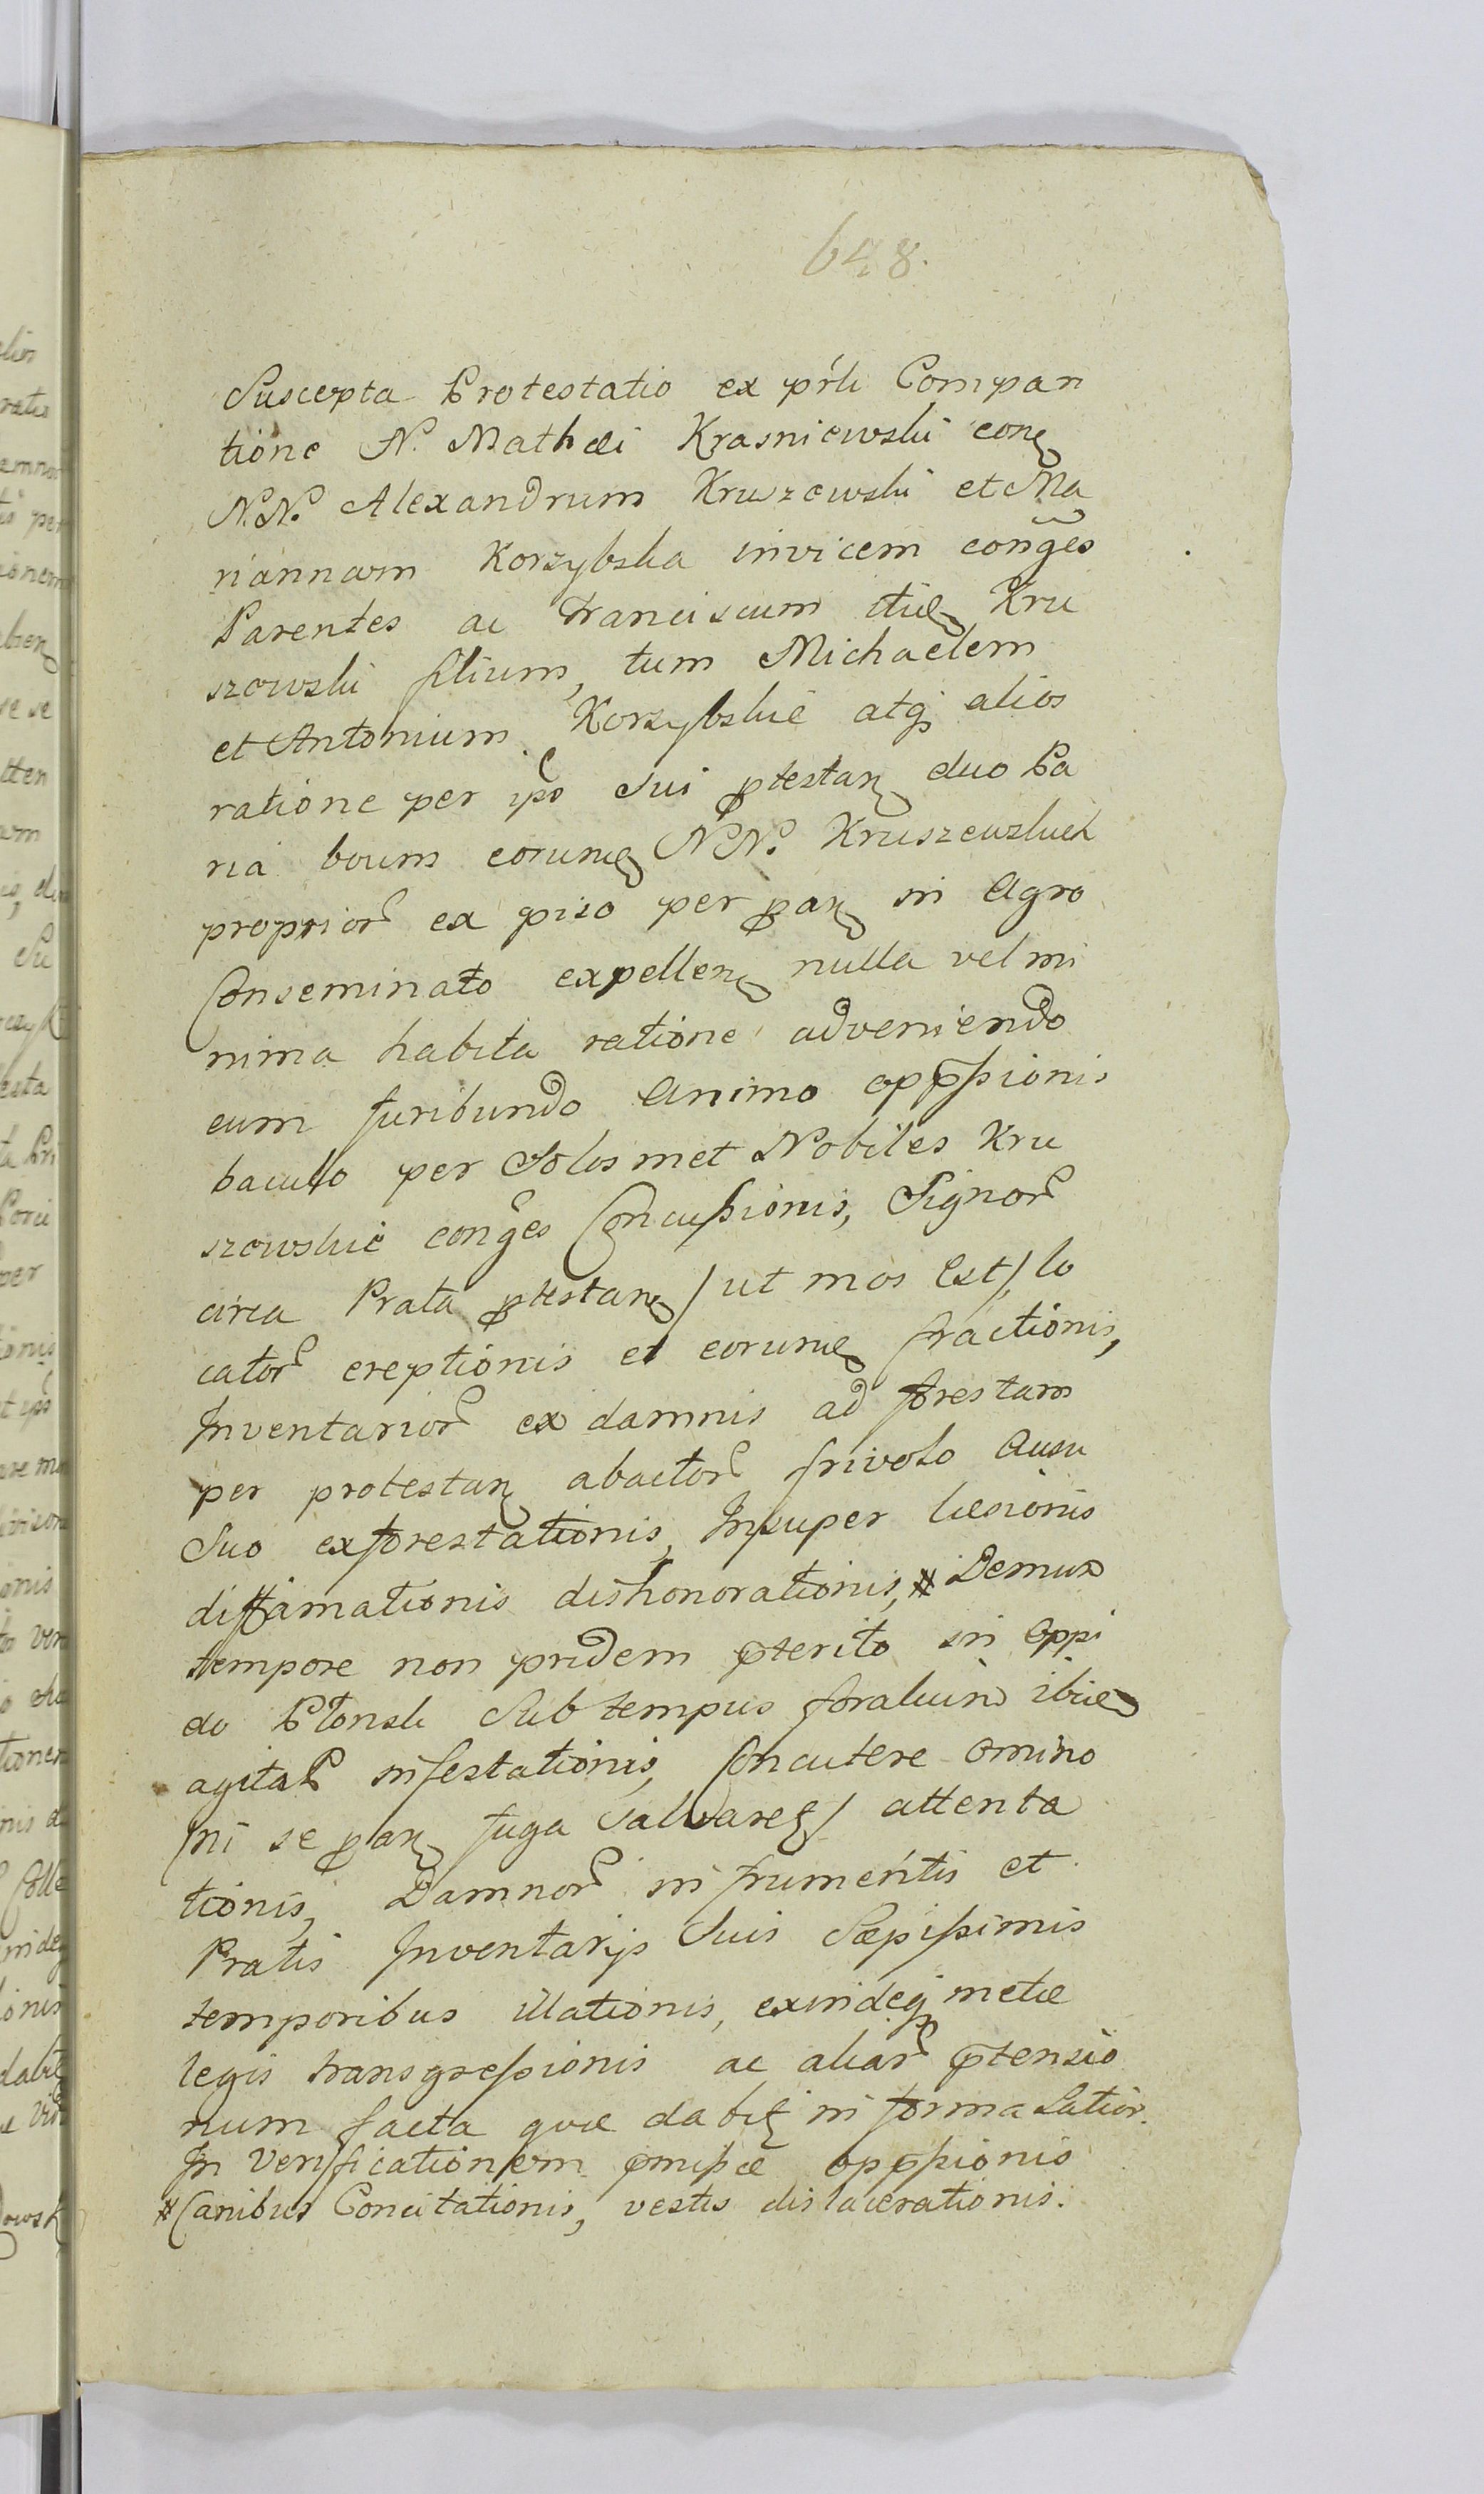 648.
Suscepta Protestatio ex pŕli Compari
tione N. Mathæi Krasniewski con
N.N. Alexandrum Kruszewski et Ma
riannam Korzybska invicem conges
Parentes ac Franciscum itid Kru
szewski filium, tum Michaelem
et Antonium Korzybskie atq alios
ratione per ipõ sui ptestan duo Pa
ria boum eorund NN. Kruszewskich
proprior ex piso per pan in Agro
Conseminato expellen nulla vel mi
nima habita ratione adveniendo
cum furibundo animo oppssionis
baculo per Solosmet Nobiles Kru
szewskie conges Concussionis, Signor
circa Prata ptestan / ut mos est / lo
cator ereptionis et eorund fractionis,
Inventarior ex damnis ad forestam
per protestan abactor frivolo ausu
Suo exforestationis, Insuper læsionis
diffamationis dishonorationis, # Demum
tempore non pridem pterito in oppi
do Plonsk Sub tempus foralium ibid
agitat infestationis, Concutere omino
/ni se pan fuga Salvaret/ attenta
tionis, Damnor in frumentis et
Pratis Inventarijs Suis Sæpissimis
temporibus illationis, exindeq metæ
legis transgressionis ac aliar ptensio
num facta quæ dabit in forma Latior.
In Verificationem pmissæ oppssionis
# Canibus Concitationis, vestis dislacerationis.